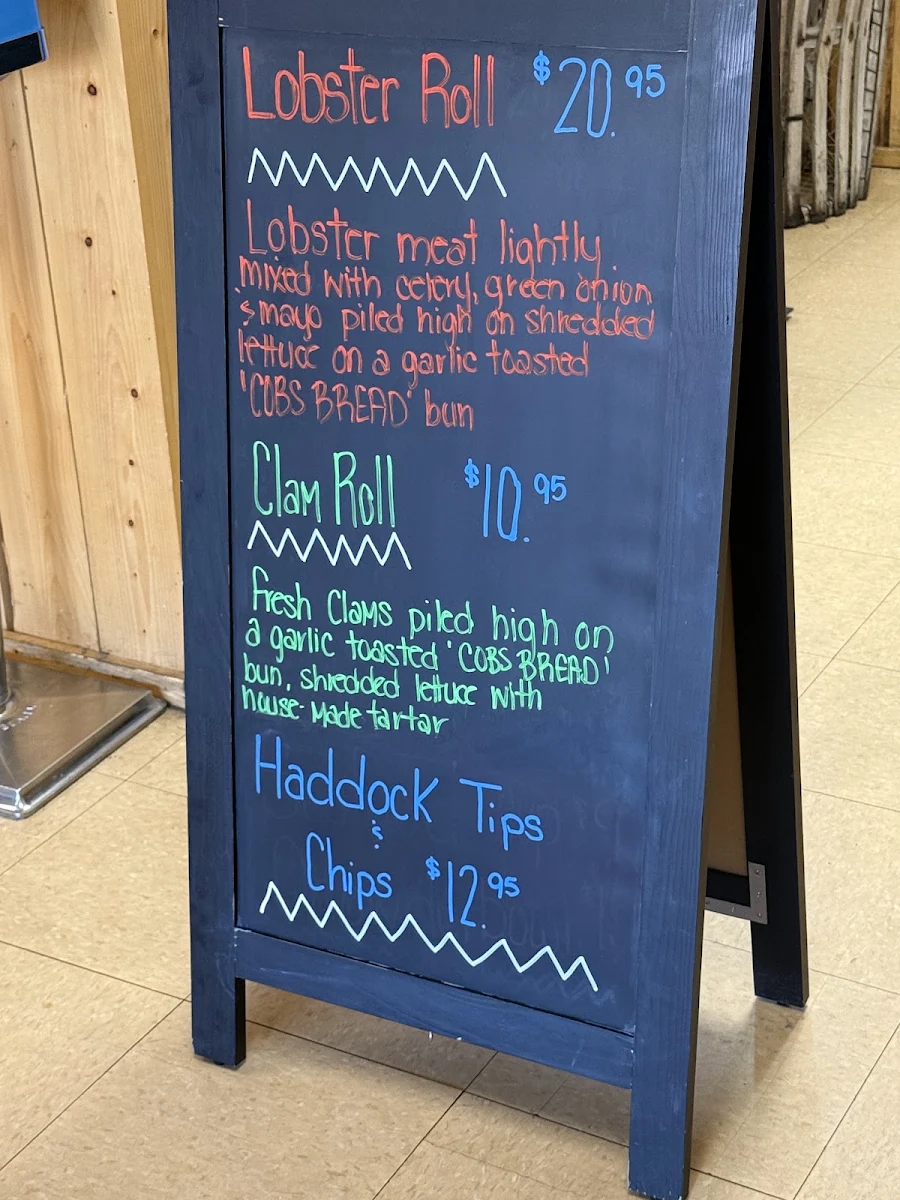 Lobster Roll $20.95
Lobster meat lightly
mixed with celery, green onion
& mayo piled high on shredded
lettuce on a garlic toasted
'COBS BREAD' bun
Clam Roll $10.95
Fresh Clams piled high on
a garlic toasted 'COBS BREAD'
bun, shredded lettuce with
house-made tartar
Haddock Tips
&
Chips $12.95